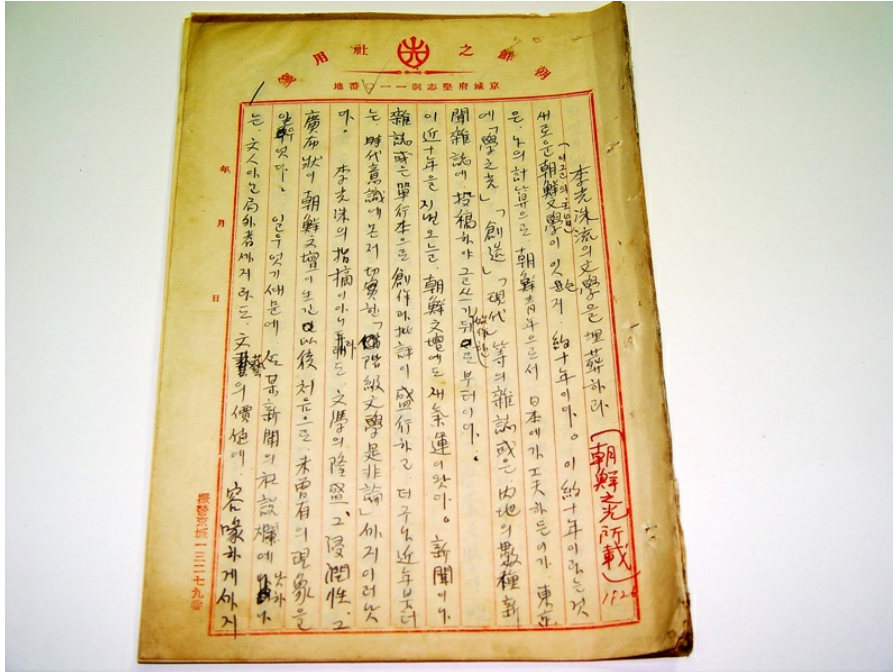 朝鮮之光社用箋
京城府堅志洞一一〇番地
李光洙流의文學을埋葬하라
朝鮮之光所載
192
(이곳의主留)
새로운朝鮮文學이잇은지 約十年이다。이約十年이라는것
은、나의計算으로 朝鮮青年으로서 日本에가工夫하든이가、東京
에「學之光」「創造」「現代」等의雜誌或은、內地의數種新
聞雜誌에 投稿하야 글쓰기 로부터이다。
이近十年을 지낸오늘、朝鮮文壇에도 새氣運이왓다。新聞이나
雜誌或은單行本으로創作과批評이盛行하고 더구나近年부터
는 時代意識에몬저切實한「階級文學是非論」까지이러낫
다。 李光洙의指摘이아니라도、文學의隆盛、그浸潤性、그
廣布狀이朝鮮文壇이생긴以後처음으로、未曾有의現象을
일우엇다。 일우엇기때문에、某新聞의社說欄에
는、文人아닌局外者까지라도、文藝의價値에、容喙하게까지
年 月 日
振替京城一三二七九番